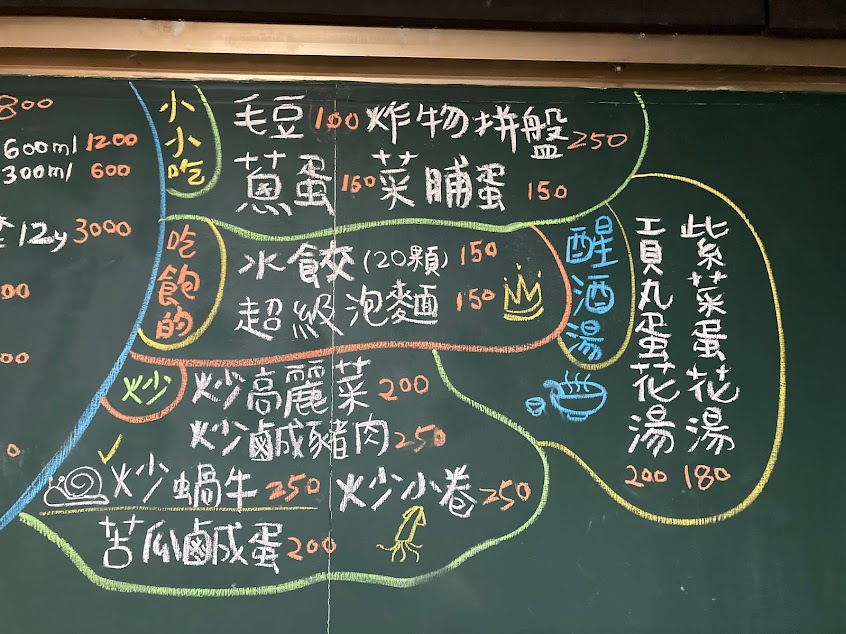 800
600ml 1200
300ml 600
12y 3000
00
00
0
小小吃
毛豆 100 炸物拼盤 250
蔥蛋 150 菜脯蛋 150
吃飽的
水餃(20顆) 150
超級泡麵 150
炒
炒高麗菜 200
炒鹹豬肉 250
炒蝸牛 250 炒小卷 250
苦瓜鹹蛋 200
醒酒湯
紫菜蛋花湯 180
貢丸蛋花湯 200